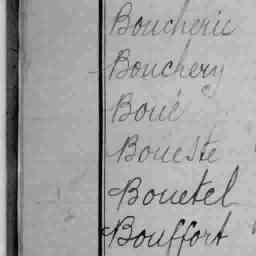 Boucherie
Bouchery
Boué
Boueste
Bouetel
Bouffort